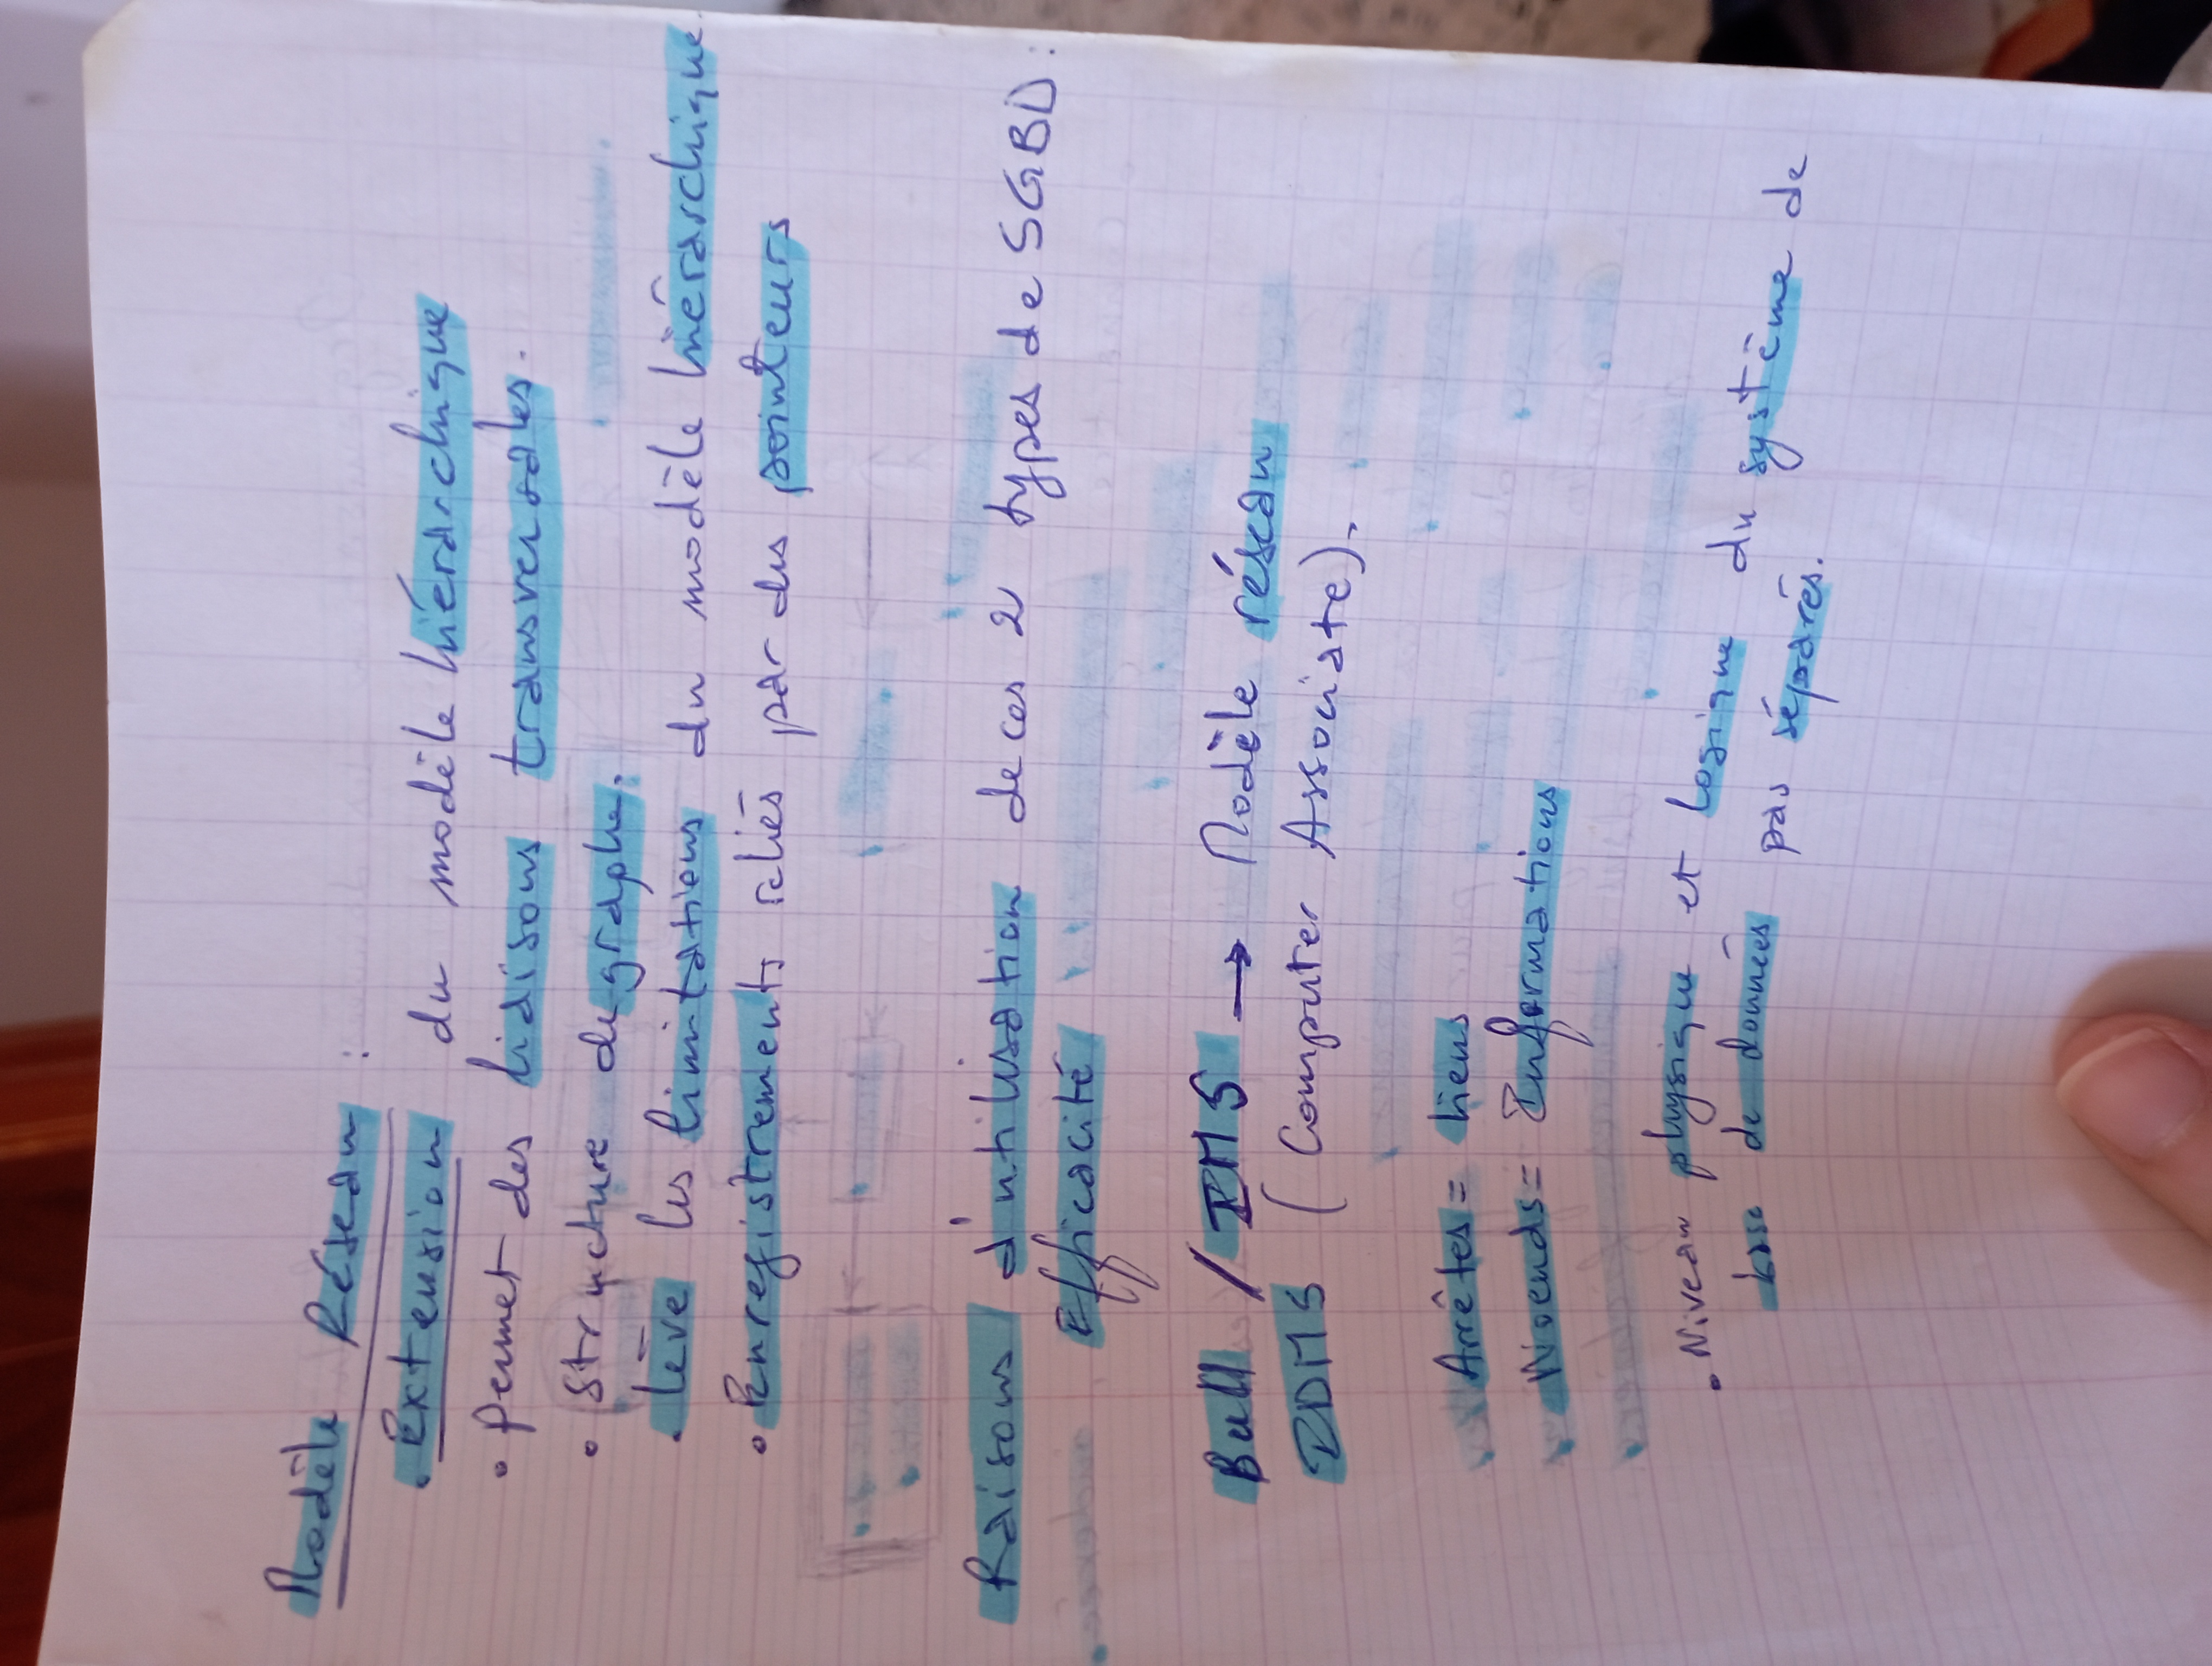 Modèle Réseau :
. Extension du modèle hiérarchique
• Permet des liaisons transversales.
• Structure de graphe.
. Lève les limitations du modèle hiérarchique.
• Enregistrements reliés par des pointeurs
Raisons d'utilisation de ces 2 types de SGBD :
Efficacité
Bull / IMS → Modèle réseau
IDMS (Computer Associate).
Arrêtes = liens
Noeuds = Informations
. Niveau physique et logique du système de
base de données pas séparés.